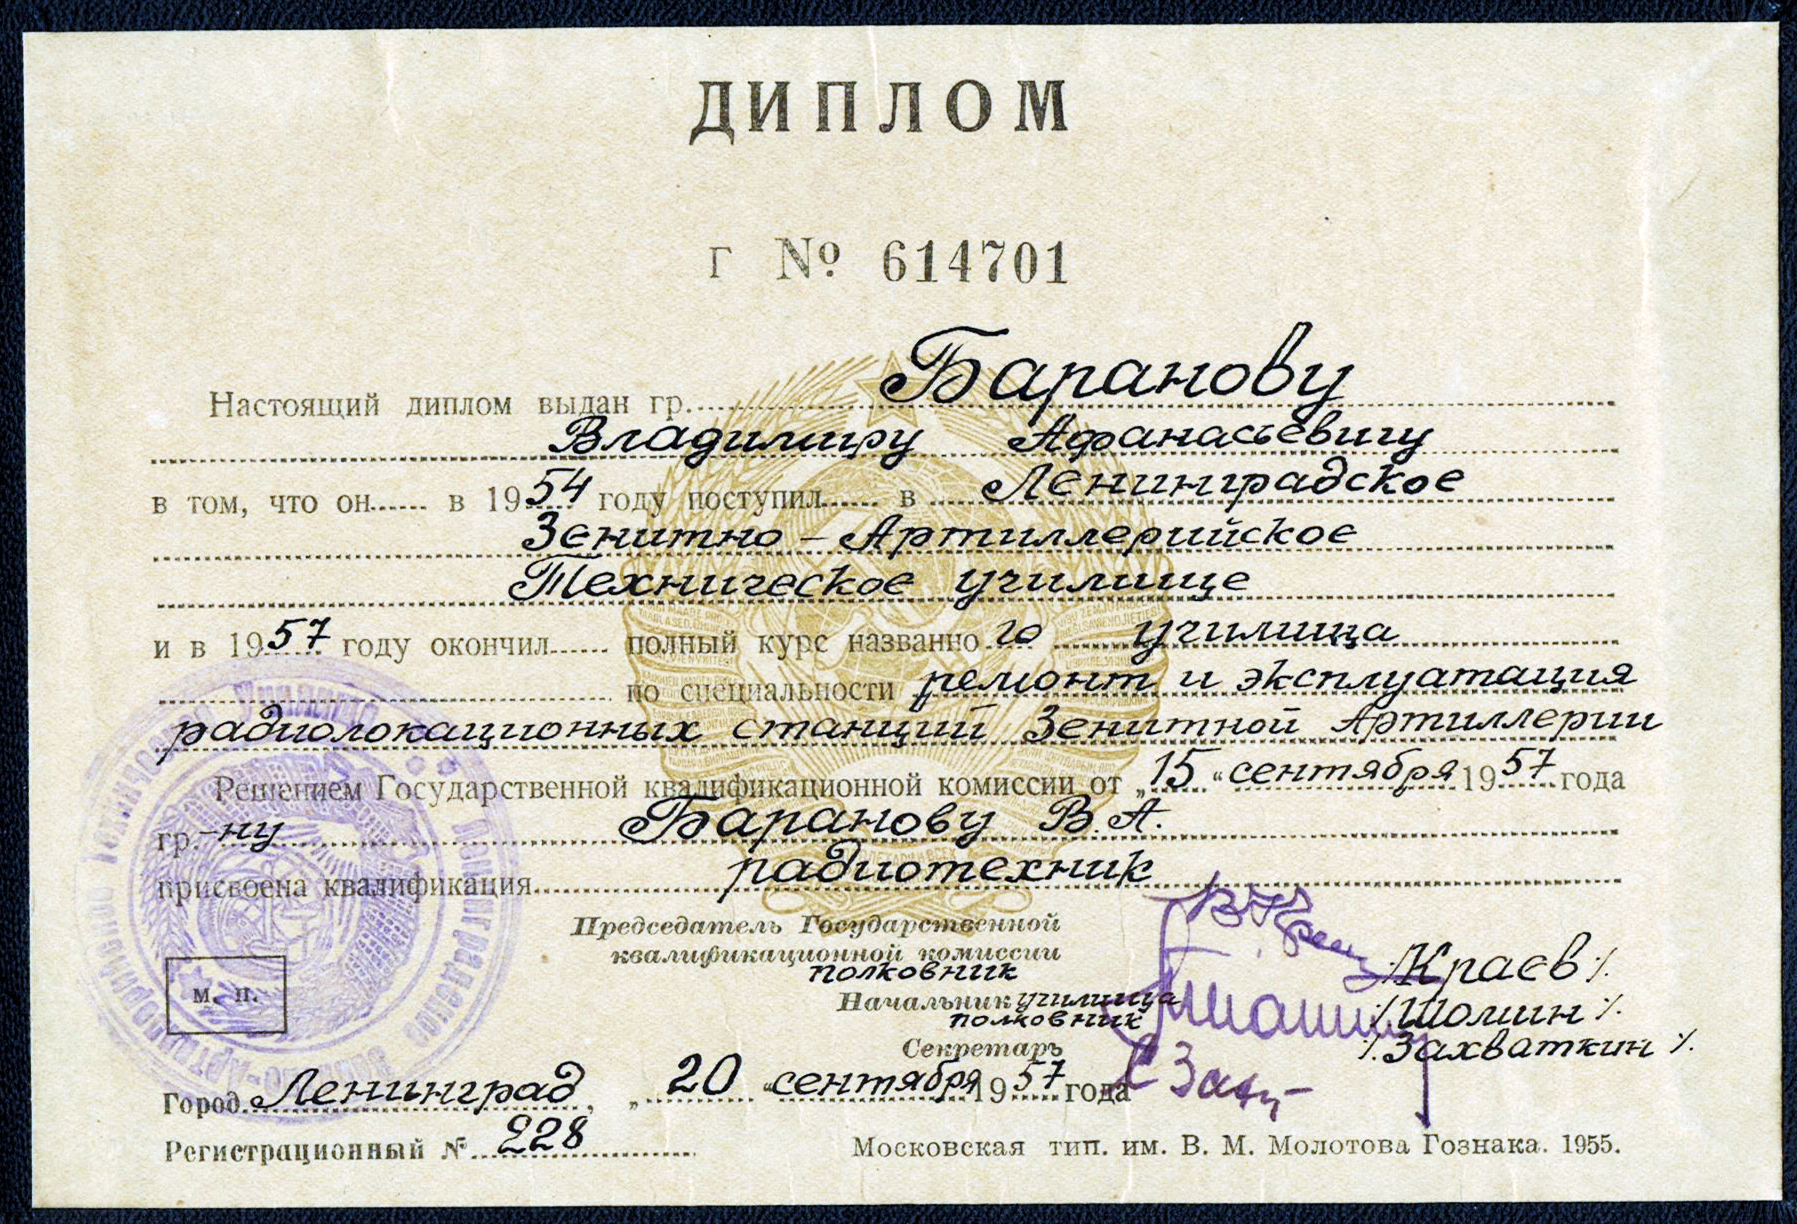 ДИПЛОМ
Г № 614701
Настоящий диплом выдан гр. Баранову
Владимиру Афанасьевичу
в том, что он в 1954 году поступил в Ленинградское
Зенитно-Артиллерийское
Техническое училище
и в 1957 году окончил полный курс названного училища
по специальности ремонт и эксплуатация
радиолокационных станций Зенитной Артиллерии
Решением Государственной квалификационной комиссии от „15“ сентября 1957 года
гр.-ну Баранову В.А.
присвоена квалификация радиотехник
Председатель Государственной
квалификационной комиссии
полковник /Краев/.
Начальник училища
полковник /Шомин/.
Секретарь /Захваткин/.
М. П.
Город Ленинград, „20“ сентября 1957 года
Регистрационный № 228
Московская тип. им. В. М. Молотова Гознака. 1955.